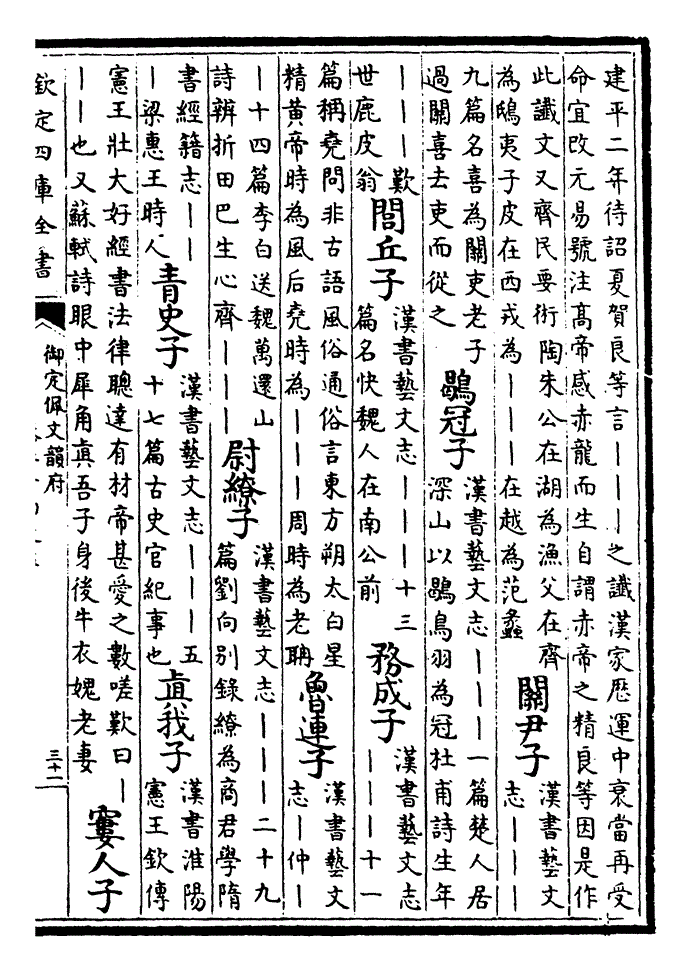 建平二年待詔夏賀良等言｜｜｜之讖漢家歷運中衰當再受
命宜改元易號注髙帝感赤龍而生自謂赤帝之精良等因是作
此讖文又齊民要術陶朱公在湖為漁父在齊
為鴟夷子皮在西戎為｜｜｜在越為范蠡
關尹子
漢書藝文
志｜｜｜
九篇名喜為關吏老子
過關喜去吏而從之
鶡冠子
漢書藝文志｜｜｜一篇楚人居
深山以鶡鳥羽為冠杜甫詩生年
｜｜｜歎
世鹿皮翁
閭丘子
漢書藝文志｜｜｜十三
篇名快魏人在南公前
務成子
漢書藝文志
｜｜｜十一
篇稱堯問非古語風俗通俗言東方朔太白星
精黄帝時為風后堯時為｜｜｜周時為老聃
魯連子
漢書藝文
志｜仲｜
｜十四篇李白送魏萬還山
詩辨折田巴生心齊｜｜｜
尉繚子
漢書藝文志｜｜｜二十九
篇劉向别錄繚為商君學隋
書經籍志｜｜
｜梁惠王時人
青史子
漢書藝文志｜｜｜五
十七篇古史官紀事也
真我子
漢書淮陽
憲王欽傳
憲王壯大好經書法律聰達有材帝甚愛之數嗟歎曰｜
｜｜也又蘇軾詩眼中犀角真吾子身後牛衣媿老妻
窶人子
欽定四庫全書
御定佩文韻府
三十二